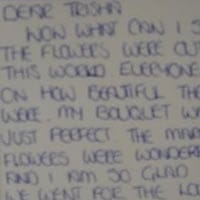 DEAR TRISHA
NOW WHAT CAN I S
THE FLOWERS WERE OUT
THIS WORLD. EVERYONE
ON HOW BEAUTIFUL THE
WERE. MY BOUQUET W
JUST PERFECT THE
FLOWERS WERE WONDER
AND I AM SO GLAD
WE WENT FOR THE